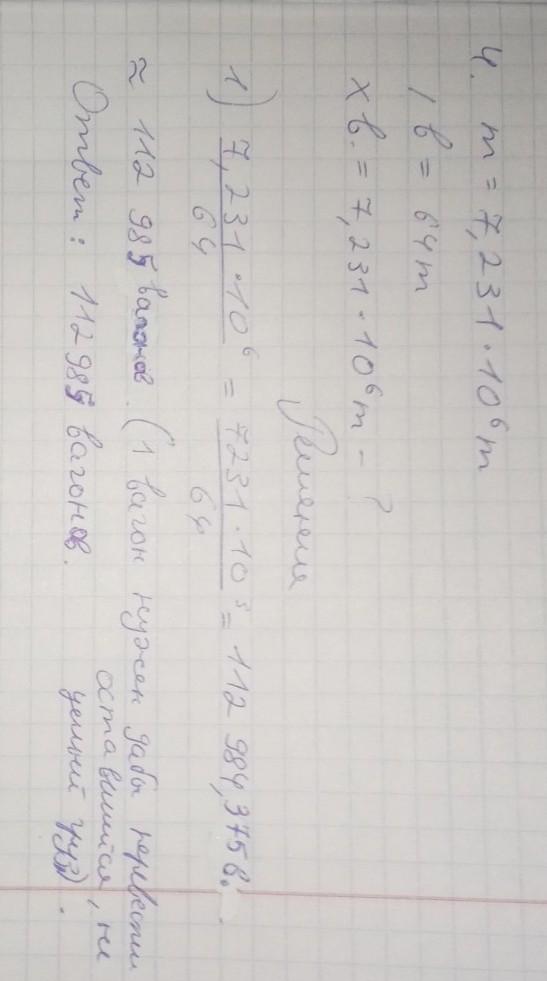 4. m = 7,231·10⁶ т
1 в = 64 т
x в. = 7,231·10⁶ т - ?
Решение
1) 7,231·10⁶/64 = 7231·10³/64 = 112 984,375 в.
≈ 112 985 вагонов. (1 вагон нужен дабы перевести
оставшийся, не
целый груз).
Ответ: 112985 вагонов.